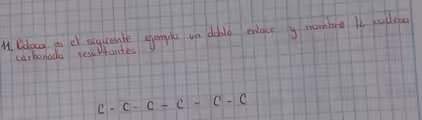 11. Coloca en el siguiente ejemplo un doble enlace y nombre la cadena
carbonada resultantes
C - C - C - C - C - C